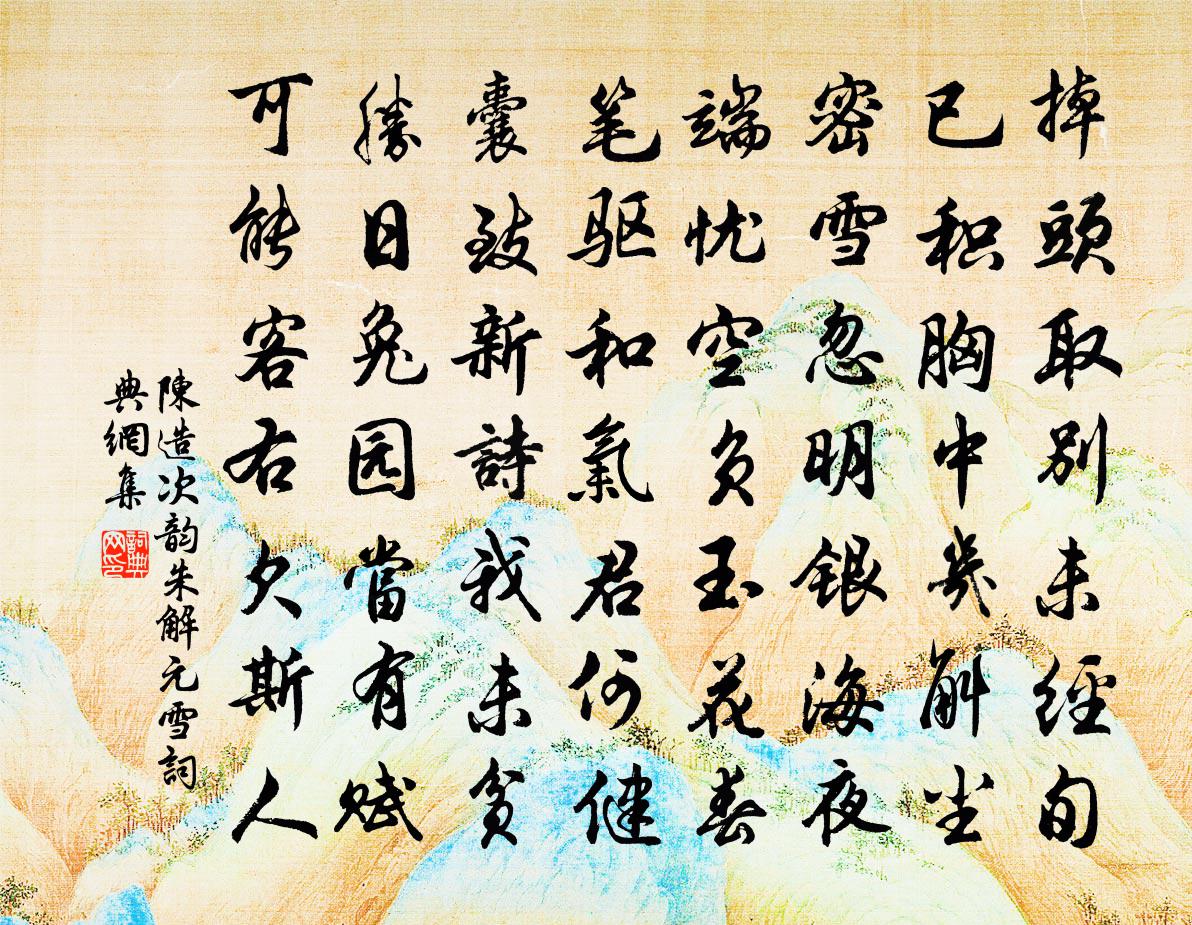 掉頭取別未經旬
已积胸中幾斛尘
密雪忽明銀海夜
端忧空负玉花春
笔驱和氣君何健
囊致新詩我未貧
勝日兔园當有赋
可能客右欠斯人
陳造次韵朱解元雪詞
典網集
詞典
网印